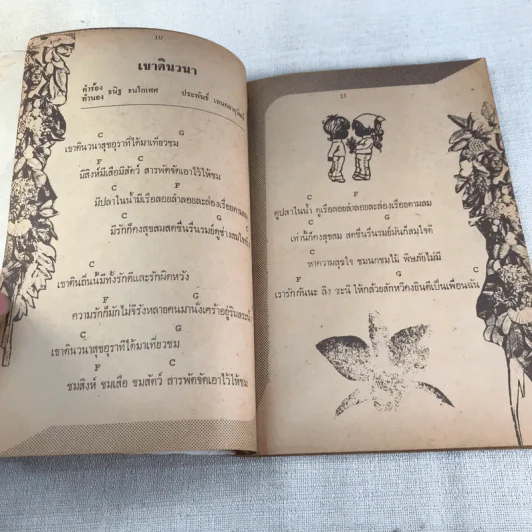 10
เขาดินวนา
คำร้อง
ทำนอง ธนิฐ ธนโกเศศ ประพันธ์
C G
เขาดินวนาสุขอุราที่ได้มาเที่ยวชม
F C
มีสิงห์มีเสือมีสัตว์ สารพัดจัดเอาไว้ให้ชม
C F
มีปลาในน้ำมีเรือลอยลำลอยละล่องเรื่อยตามลม
C G
มีรักก็คงสุขสมสดชื่นรื่นรมย์คู่ช่างสมใจ
C F
เขาดินถิ่นนี้มีทั้งรักดีและรักผิดหวัง
F G
ความรักก็มักไม่จีรังหลายคนมานั่งเศร้าอยู่ริม
C G
เขาดินวนาสุขอุราที่ได้มาเที่ยวชม
F C
ชมสิงห์ ชมเสือ ชมสัตว์ สารพัดจัดเอาไว้ให้ชม
11
C F
ดูปลาในน้ำ ดูเรือลอยลำลอยละล่องเรื่อยตามลม
C G
เท่านี้ก็คงสุขสม สดชื่นรื่นรมย์มันก็สมใจดี
C F
หาความสุขใจ ชมนกชมไม้ พิษภัยไม่มี
C G C
เรารักกันนะ ลิง ชะนี ให้กล้วยสักหวีคงยินดีเป็นเพื่อนฉัน